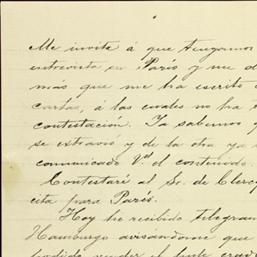 Me invita á que tengamos
entrevista en París y me d
más que me ha escrito
cartas, á las cuales no ha
contestación. Ya sabemos q
se extravió y de la otra ya
comunicado Vd. el contenido.
Contestaré al Sr. de Clerq
cita para París.
Hoy he recibido telegram
Hamburgo avisándome que
podido vender el bufe